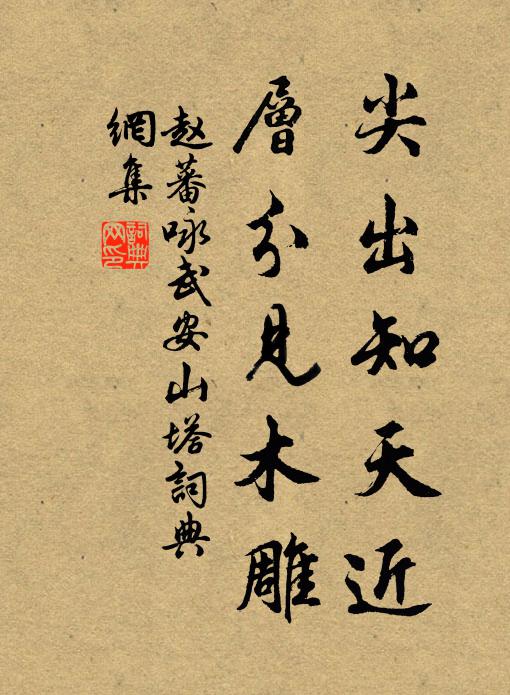 尖出知天近
層分見木雕
赵蕃咏武安山塔詞典
網集
詞典
网印